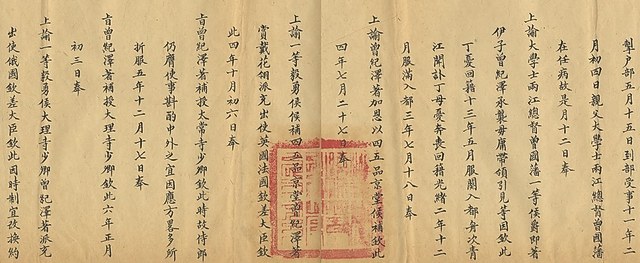 掣戶部五月十五日到部受事十一年二
月初四日親父大學士兩江總督曾國藩
在任病故是月十二日奉
上諭大學士兩江總督曾國藩一等侯爵即著
伊子曾紀澤承襲毋庸帶領引見等因欽此
丁憂回籍十三年五月服闋入都舟次青
江聞訃丁母憂奔喪回籍光緒二年十二
月服滿入都三年七月十八日奉
上諭曾紀澤著加恩以四五品京堂候補欽此
四年七月二十七日奉
上諭一等毅勇侯候補四五品京堂曾紀澤著
賞戴花翎派充出使英國法國欽差大臣欽
此四年十月初六日奉
旨曾紀澤著補授太常寺少卿欽此時故侍郎
仍膺使事斟酌中外之宜因應方畧多所
折服五年十二月十七日奉
旨曾紀澤著補授大理寺少卿欽此六年正月
初三日奉
上諭一等毅勇侯大理寺少卿曾紀澤著派充
出使俄國欽差大臣欽此因時制宜改換約